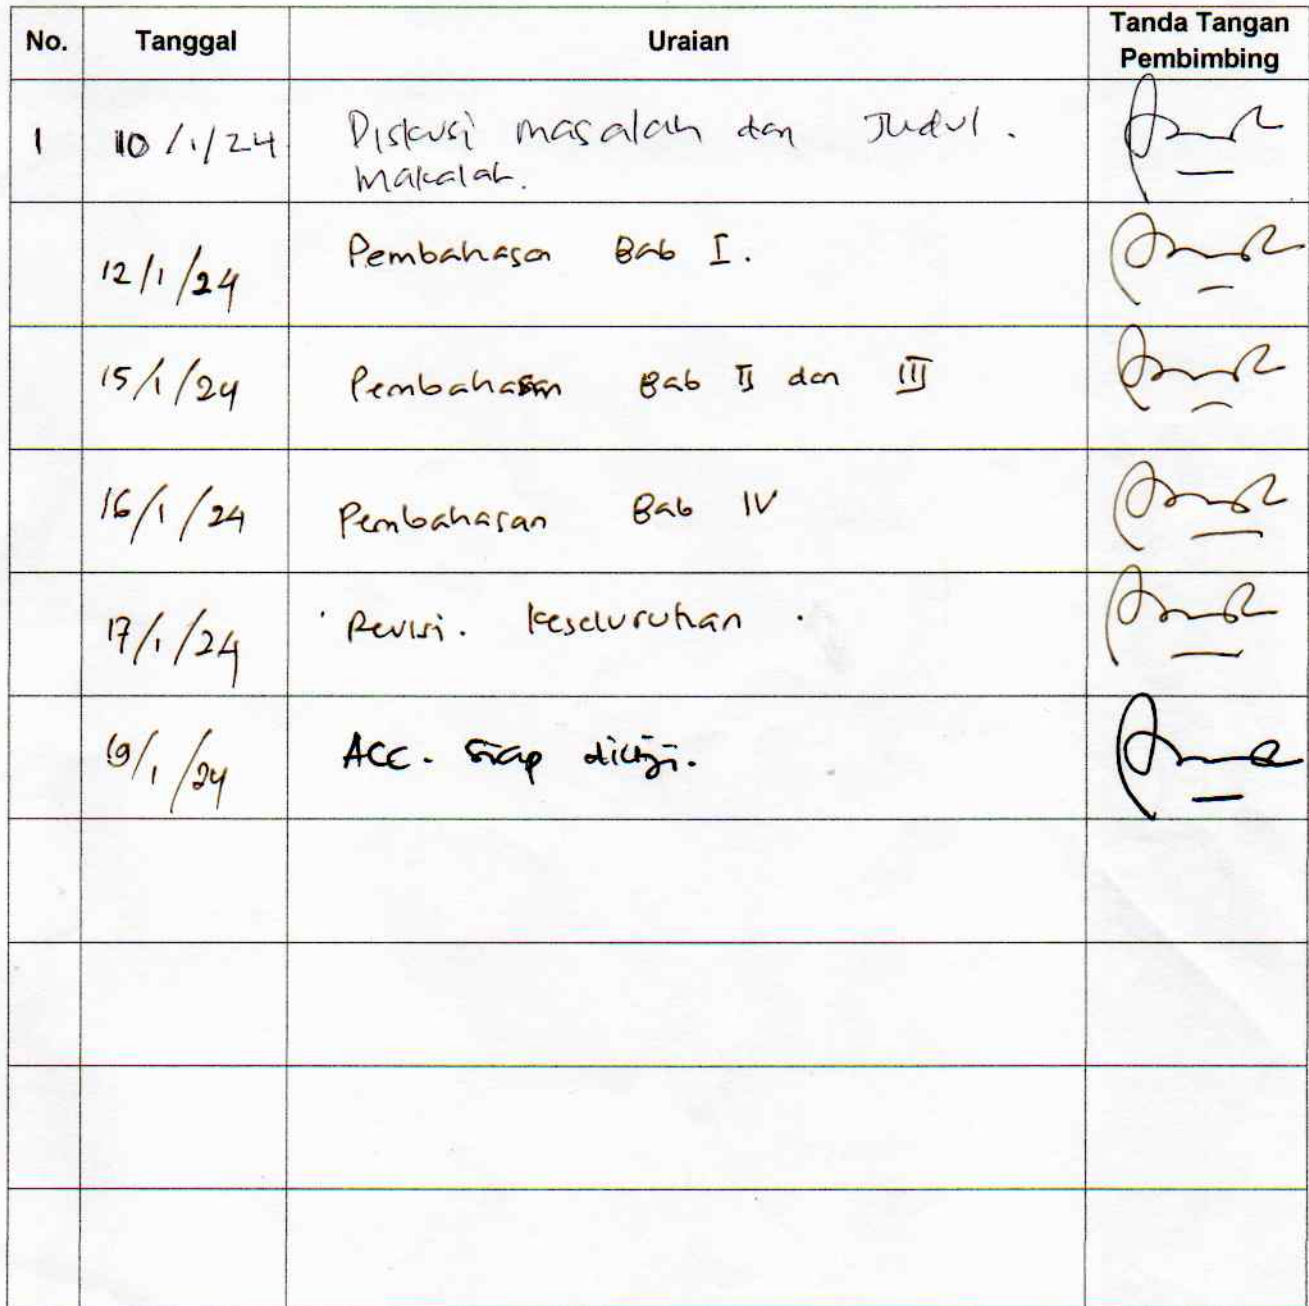 No. Tanggal Uraian Tanda Tangan
Pembimbing
1 10/1/24 Diskusi masalah dan Judul.
Makalah.
12/1/24 Pembahasan Bab I.
15/1/24 Pembahasan Bab II dan III
16/1/24 Pembahasan Bab IV
17/1/24 Revisi. keseluruhan.
19/1/24 ACC. Siap diuji.